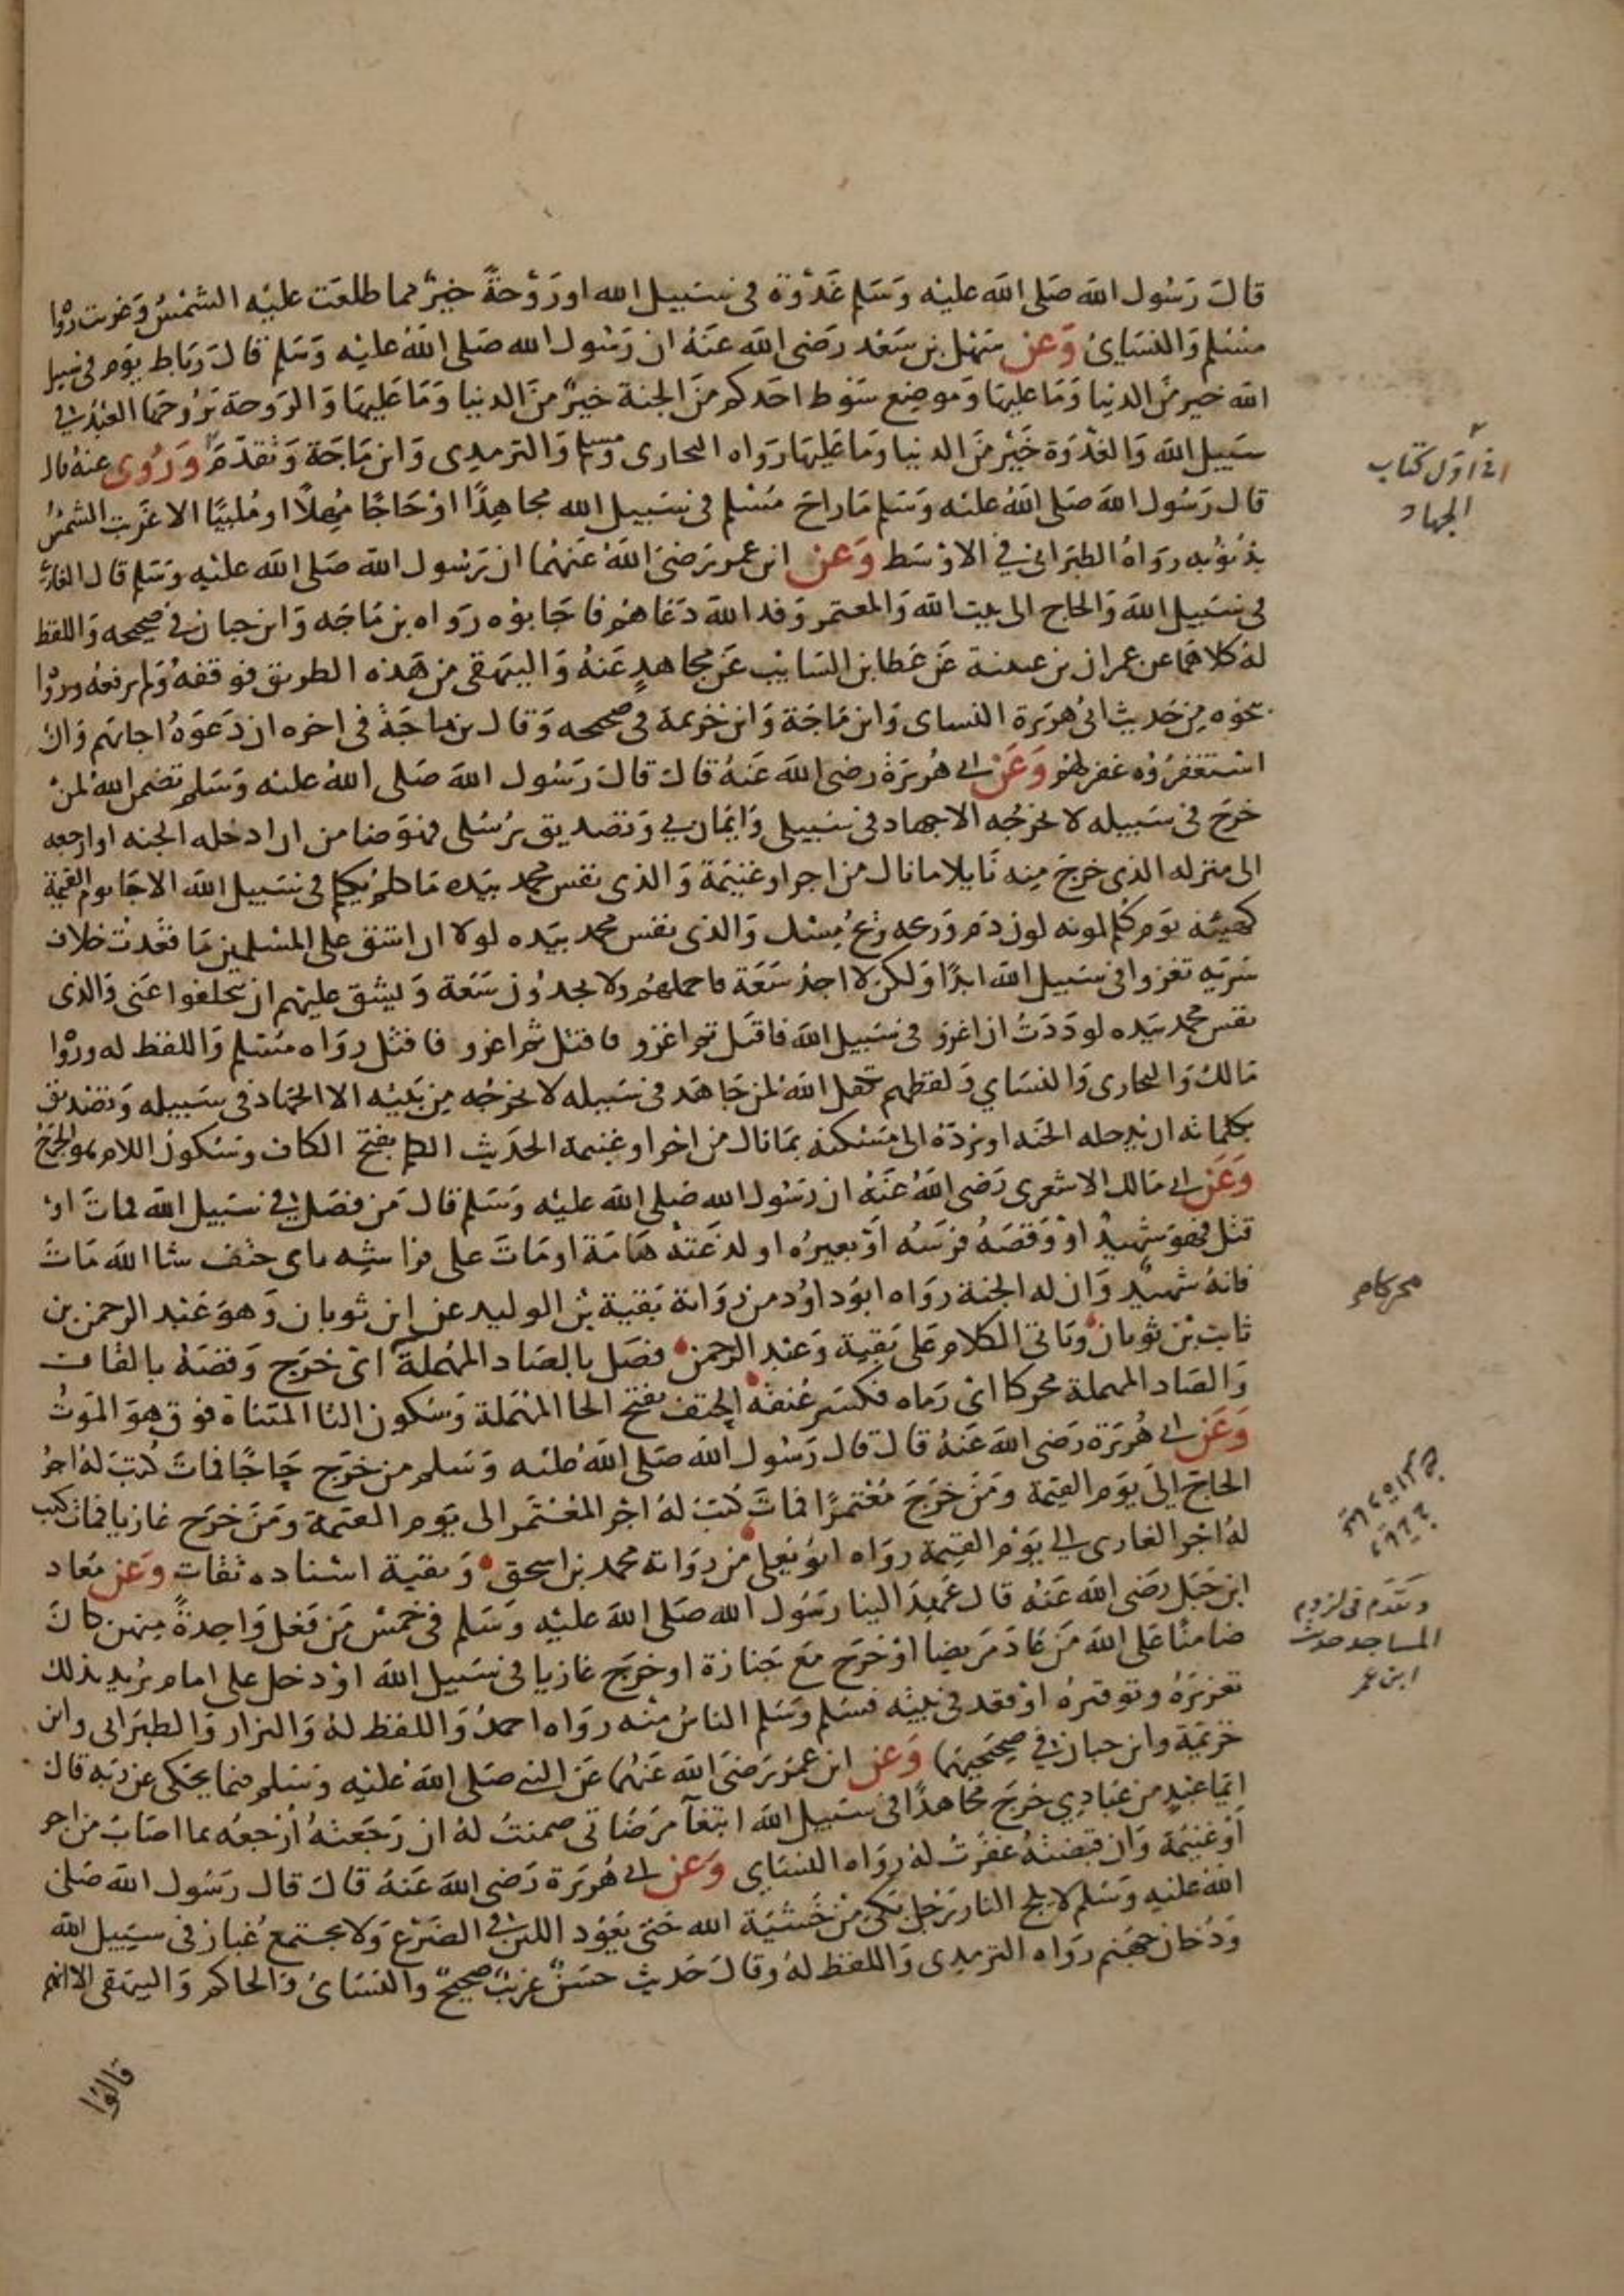 قال رَسُول الله صَلى الله عليْه وَسَلم غَدْوَة في سَبيل الله اورَوْحةً خيْرٌ مما طلعَت عليْه الشمْسُ وَغربت رَوَاه
مسْلم وَالنسَايئ وَعَن سَهْل بن سَعْد رَضى الله عَنهُ ان رَسُول الله صَلى اللهُ عليْه وَسَلم قالَ رِباط يوَم في سَبيل
الله خير مِنَ الدنيا وَمَا عليهَا وَموضِع سَوط احَدكم مِنَ الجنة خيْرٌ مِنَ الدنيا وَمَا عَليهَا وَالرَوحة يَرُوحهَا العَبْدُ في
سَبيل الله وَالغَدْوَة خَيْر مِنَ الدنيا وَمَا عَليهَا رَوَاه البخارى ومسلم وَالترمدى وَابن مَاجَة وَتقدَمَ وَرُوى عنهُ قال
قال رَسُول الله صَلى اللهُ عليه وَسَلم مَا راحَ مُسْلم في سَبيل الله مجاهِدًا اوْ حَاجًا مُهِلاً او مُلبيًا الا غَرَبت الشمْسُ
بذُنوُبه رَوَاهُ الطبرَانى في الاوْسَط وَعَن ابن عمر رَضىَ اللهَ عَنهُما ان رَسُول الله صَلى الله عليْه وَسَلم قال الغازِى
في سَبيل الله وَالحَاج الى بيت الله وَالمعتمر وَفد الله دَعَاهُم فاجَابوُه رَوَاه بن مَاجَه وَابن حبان في صَحيحه وَاللفظ
لهُ كلاهُما عن عمران بن عيينة عَن عَطا بن السَايب عَن مجاهِدٍ عَنهُ وَالبيهَقى مِن هَذه الطريق فوقفهُ وَلم يرفعهُ ورَوَا
نحوَه مِن حَديث ابي هرَيرة النسَاى وَابن مَاجَة وَابن خزيمة في صحيحه وَقال بن ماجَةَ في اخره ان دَعَوَهُ اجابهَم وَان
اسْتغفرُوُه غفر لهُم وَعَن ابي هُريَرة رضى الله عَنهُ قالَ قالَ رَسُول الله صَلى اللهُ عليه وَسَلم تضمن اللهُ لمنْ
خرَج في سَبيله لا يخرجُه الا جهاد في سَبيلى وَايمَان بي وَتصديق برُسُلى فهُوَ ضامن ان ادخله الجنه او ارجعه
الى منزله الذى خرجَ مِنه نَايلا ما نال من اجر او غنيمَة وَالذى نفس محمد بيَده مَا كلم يُكلم في سَبيل الله الا جَا يوم القيمة
كهَيئته يوَم كُلم لونه لون دَم وَريحه رِيحُ مِسْك وَالذى نفس محمد بيَده لولا ان اشق على المسْلمين مَا قعَدتُ خلاف
سَريَه تغزوا في سَبيل الله ابدًا وَلكن لا اجدُ سَعَة فاحملهُم وَلا يجدُون سَعَة وَيشق عليهم ان يتخلفوا عَنى وَالذى
نفس محمد بيَده لودَدتُ ان اغزو في سَبيل الله فاقتَل ثم اغزو فاقتل ثم اغزو فاقتل رَوَاه مُسْلم وَاللفظ له ورَوَا
مَالك وَالبخارى وَالنسَاي وَلفظهم تكفل اللهُ لمن جَاهَد في سَبيله لا يخرجُه مِن بَيْتِه الا الجهَاد في سَبيله وَتصديق
بكلماته ان يدخله الجَنه او يردّهُ الى مَسْكنه بمَا نال من اجر او غنيمة الحَديث الكلم بفتح الكاف وَسُكون اللام هوَ الجُرح
وَعَن ابي مَالك الاشعرى رَضى اللهُ عَنهُ ان رَسُول الله صَلى الله عليْه وَسَلم قالَ مَن فصَل في سَبيل الله فماتَ اوْ
قتل فهوَ شهيدٌ اوْ وَقصَهُ فرَسُه أوْ بعيرُه او لدَغتهُ هَامَة او مَاتَ على فراشِه باى حتف شا الله مَاتَ
فانهُ شهيدٌ وَان له الجنة رَوَاه ابوُ داوُد من رِوَاية بَقية بْن الوليد عن ابن ثوبان وَهوَ عَبْد الرحمن بن
ثابت بْن ثوبان وياتى الكلام عَلى بَقية وَعَبْد الرحمن فصَل بالصَاد المهْملة اىْ خرَج وَقصَهُ بالقاف
وَالصَاد المهملة محركا اىْ رَماه فكسَر عُنقهُ الحتف بفتح الحا المهْمَلة وَسُكون التا المثناة فوق هوَ الموَتُ
وَعَن ابي هُريَرة رَضى الله عَنهُ قالَ قال رَسُول الله صَلى الله عليه وَسَلم من خرَج حَاجًا فماتَ كُتبَ لهُ اجرُ
الحاج إلىَ يوَم القيمة وَمَنْ خرَجَ مُعْتمرًا فماتَ كُتبَ لهُ اجْر المعْتمَر الى يَوم القيمة وَمَنَ خرَج غازيا فماتَ كتب
لهُ اجْر الغازى الي يوَمْ القيمة روَاه ابوُ يَعلى من رِوَاية محمد بن اسحق وَبقية اسْناده ثقات وَعَن مُعاد
ابن جَبل رَضى الله عَنهُ قال عَهِدَ الينا رَسُول الله صَلى الله عليْه وَسَلم في خمسْ مَن فعَل وَاحِدةً مِنهن كانَ
ضامنًا عَلى الله مَن عَادَ مَريضا اوْ خَرَج مَعَ جَنازة او خرَج غازيا في سَبيل الله اوْ دخل على امام يرُيد بذلك
تعزيرَهُ وتوقيرهُ اوْ قعد في بيْته فسَلم وَسَلم الناسُ مِنْه رَوَاه احمدُ وَاللفظ لهُ وَالبزار وَالطبرَانى وابن
خزيمَة وابن حبان في صَحيحيهما وَعَن ابن عمَر رَضىَ الله عَنهُما عَن النبي صَلى اللهَ عليْه وَسَلم فيما يحْكى عَن رَبه قالَ
ايّمَا عَبْدٍ من عبَادِي خرَج مجاهدًا في سَبيل الله ابتغآ مَرضَاتى ضمنتُ لهُ ان رَجَعتهُ أرْجعُه بما اصَابَ من اجر
أوْ غنيمَة وَان قبضتهُ غفرتُ لهُ رَوَاه النسَاي وَعَن ابي هُريَرة رَضى الله عَنهُ قالَ قال رَسُول الله صَلى
اللهُ عليه وَسَلم لا يلج النار رَجل بَكى مِنْ خَشيَة الله حَتى يَعُود اللبن في الضَرْع وَلا يجتمعُ غبار في سَبيل الله
وَدُخان جهَنم رَوَاه الترمدى وَاللفظ لهُ وَقالَ حَديث حسَنٌ غريبٌ صحيحٌ وَالنسَائ وَالحاكم وَالبيهَقى الا انهم
قالوُا
في اوّل كتاب
الجهاد
محركا
وتقدم فى لزوم
المساجد حديث
ابن عمر